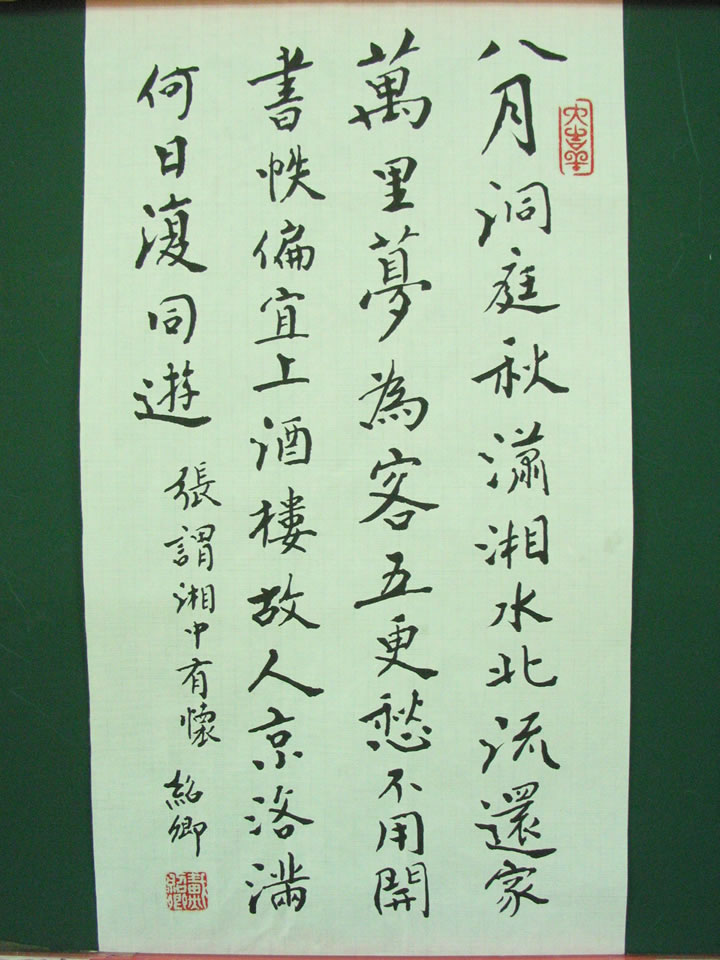 八月洞庭秋瀟湘水北流還家
萬里夢為客五更愁不用開
書帙偏宜上酒樓故人京洛滿
何日復同遊
張謂湘中有懷 紹卿